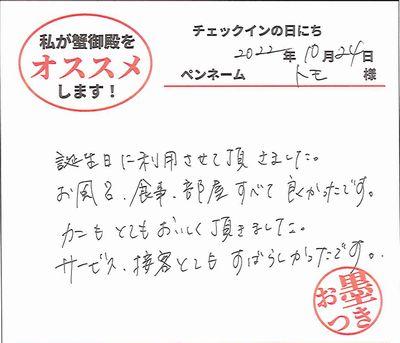 私が蟹御殿を
オススメ
します！
チェックインの日にち
2022年10月24日
ペンネーム トモ 様
誕生日に利用させて頂きました。
お風呂、食事、部屋すべて良かったです。
カニもとてもおいしく頂きました。
サービス、接客とてもすばらしかったです。
お墨つき